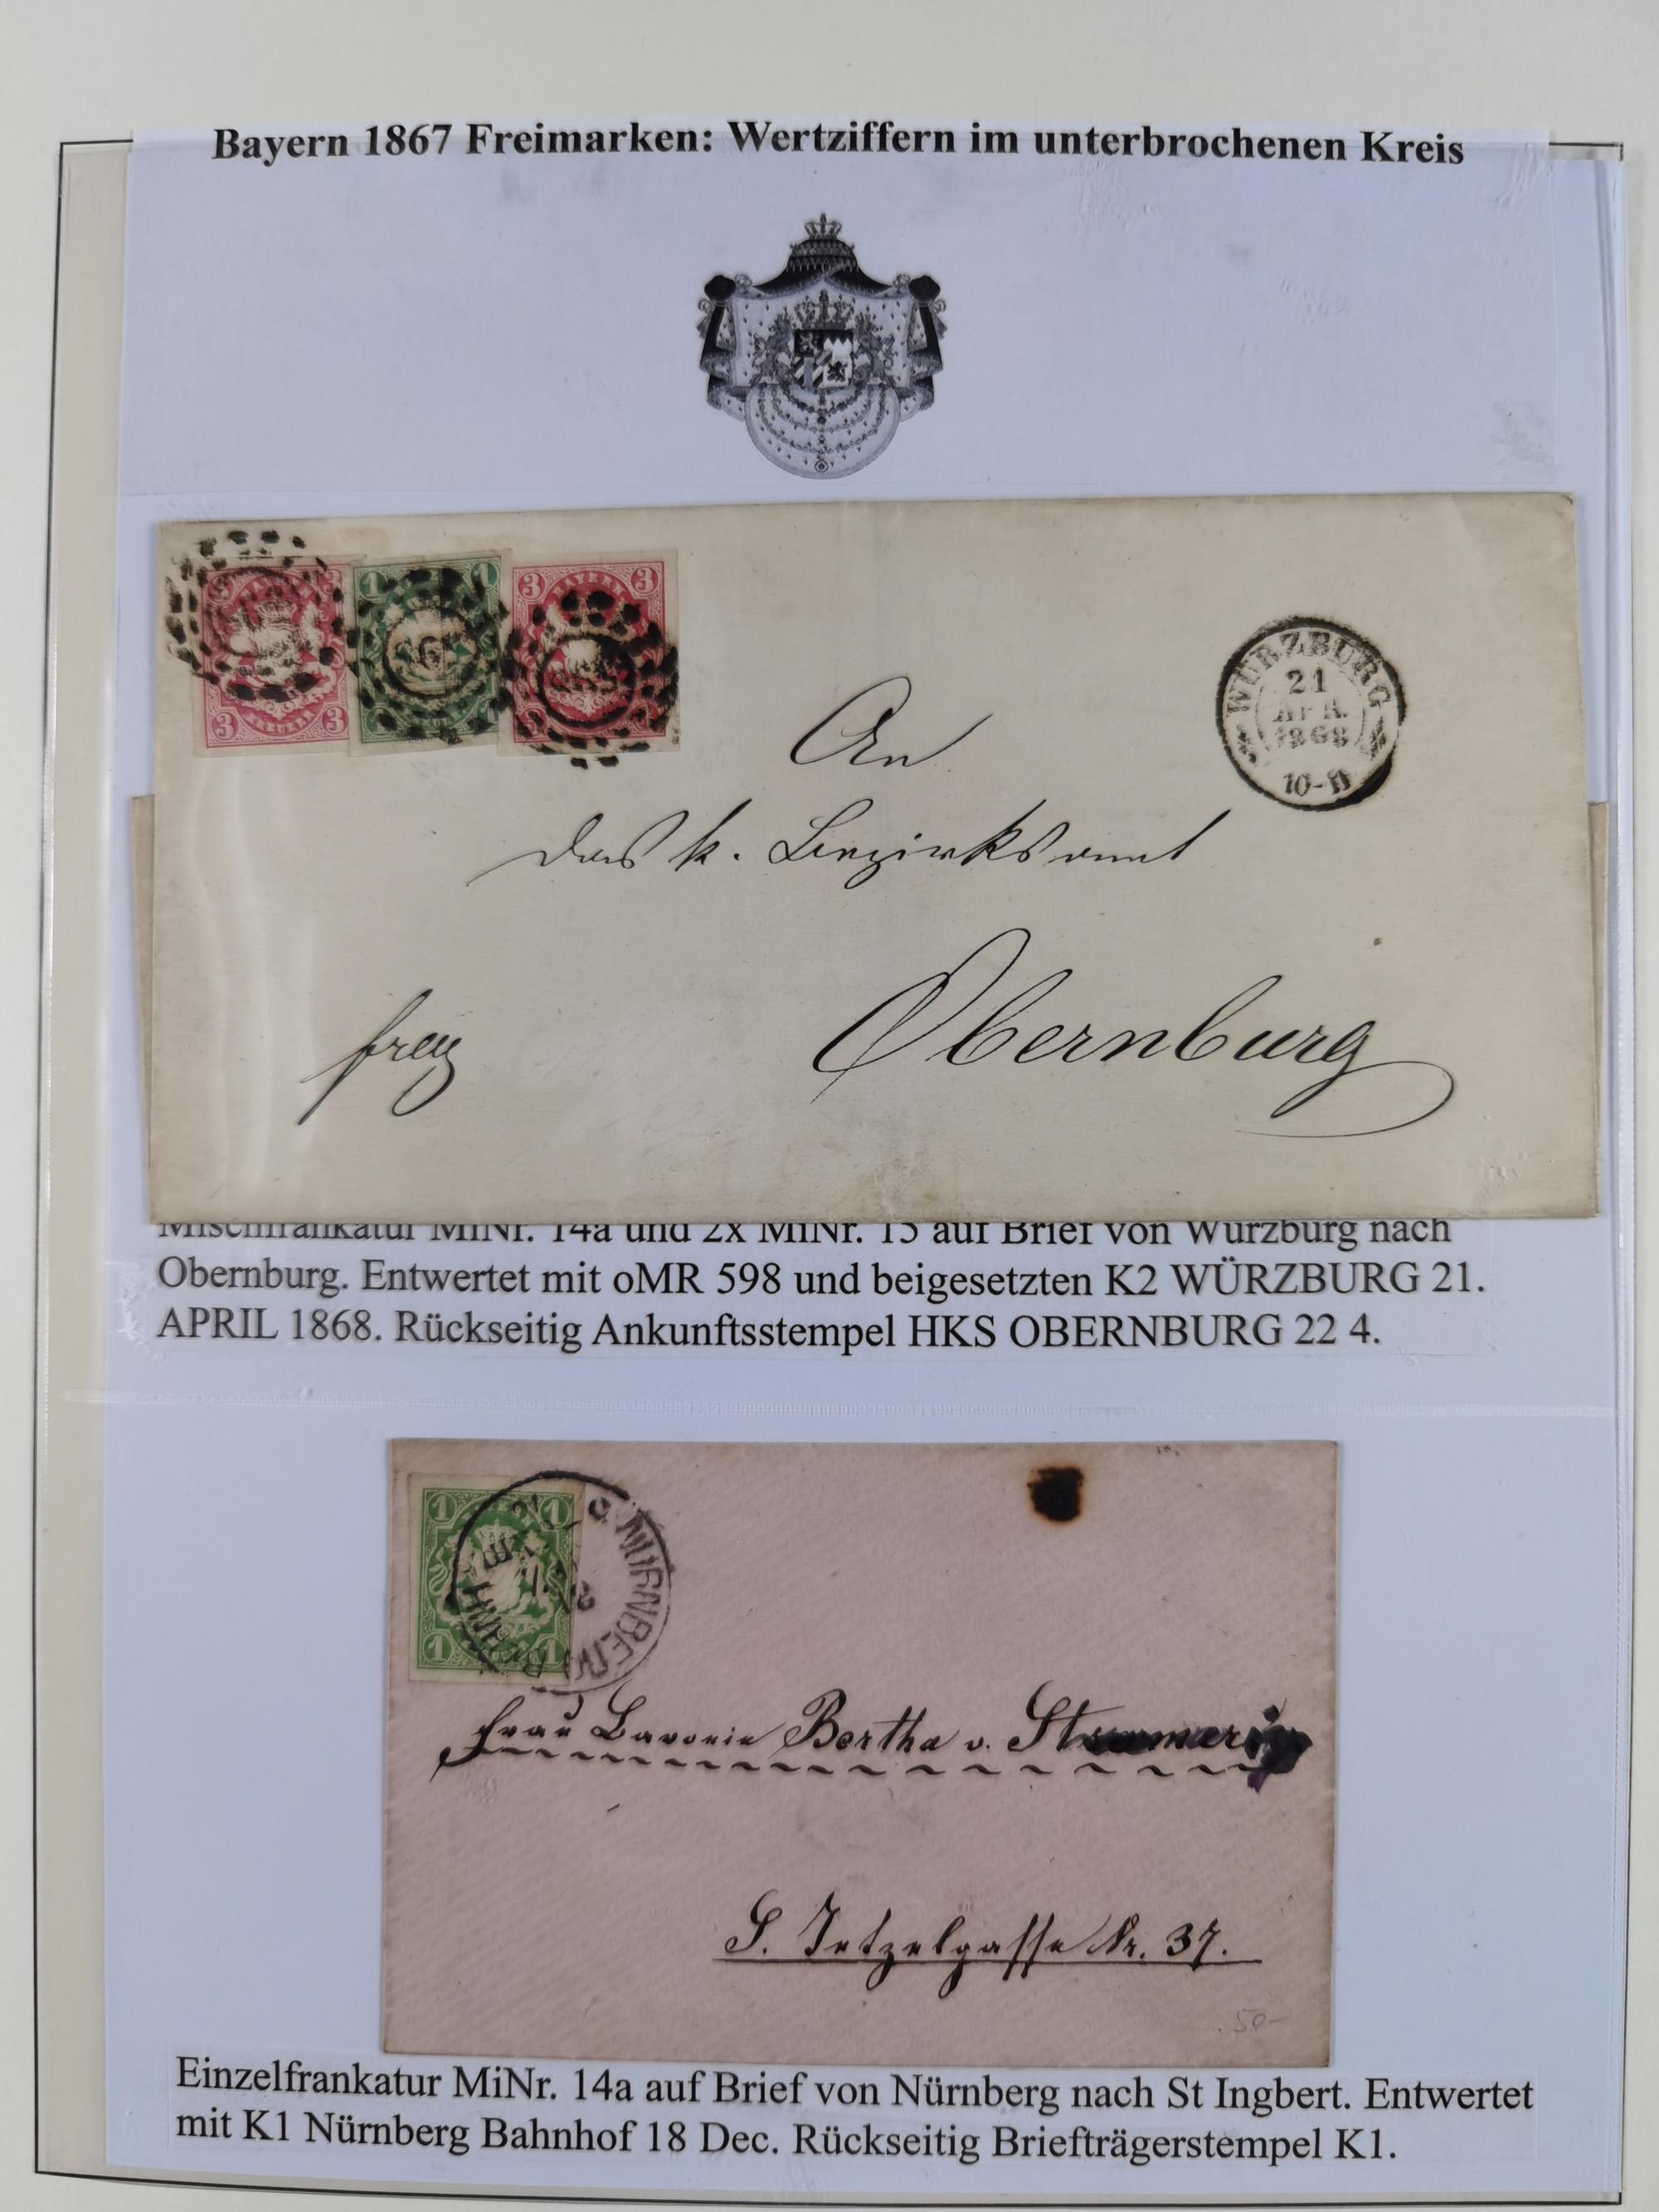 Bayern 1867 Freimarken: Wertziffern im unterbrochenen Kreis
3 3 3 KREUZER
1 1
3 3 BAYERN
WÜRZBURG
21
APR.
1868
10-11
An
das k. Bezirksamt
frey
Obernburg
Mischfrankatur MiNr. 14a und 2x MiNr. 15 auf Brief von Würzburg nach
Obernburg. Entwertet mit oMR 598 und beigesetzten K2 WÜRZBURG 21.
APRIL 1868. Rückseitig Ankunftsstempel HKS OBERNBURG 22 4.
1 1
1 1
NÜRNBERG
Frau Baronin Bertha v.
S. Tetzelgasse Nr. 37.
50-
Einzelfrankatur MiNr. 14a auf Brief von Nürnberg nach St Ingbert. Entwertet
mit K1 Nürnberg Bahnhof 18 Dec. Rückseitig Briefträgerstempel K1.